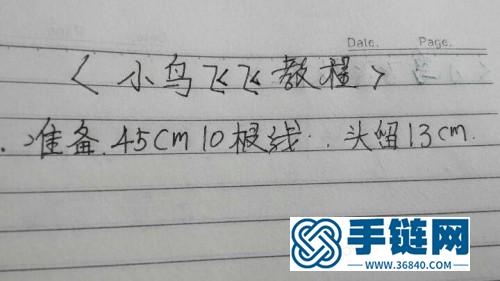 Date. Page.
<小鸟飞飞教程>
.准备.45cm 10根线.头留13cm.
手链网
WWW.36840.COM